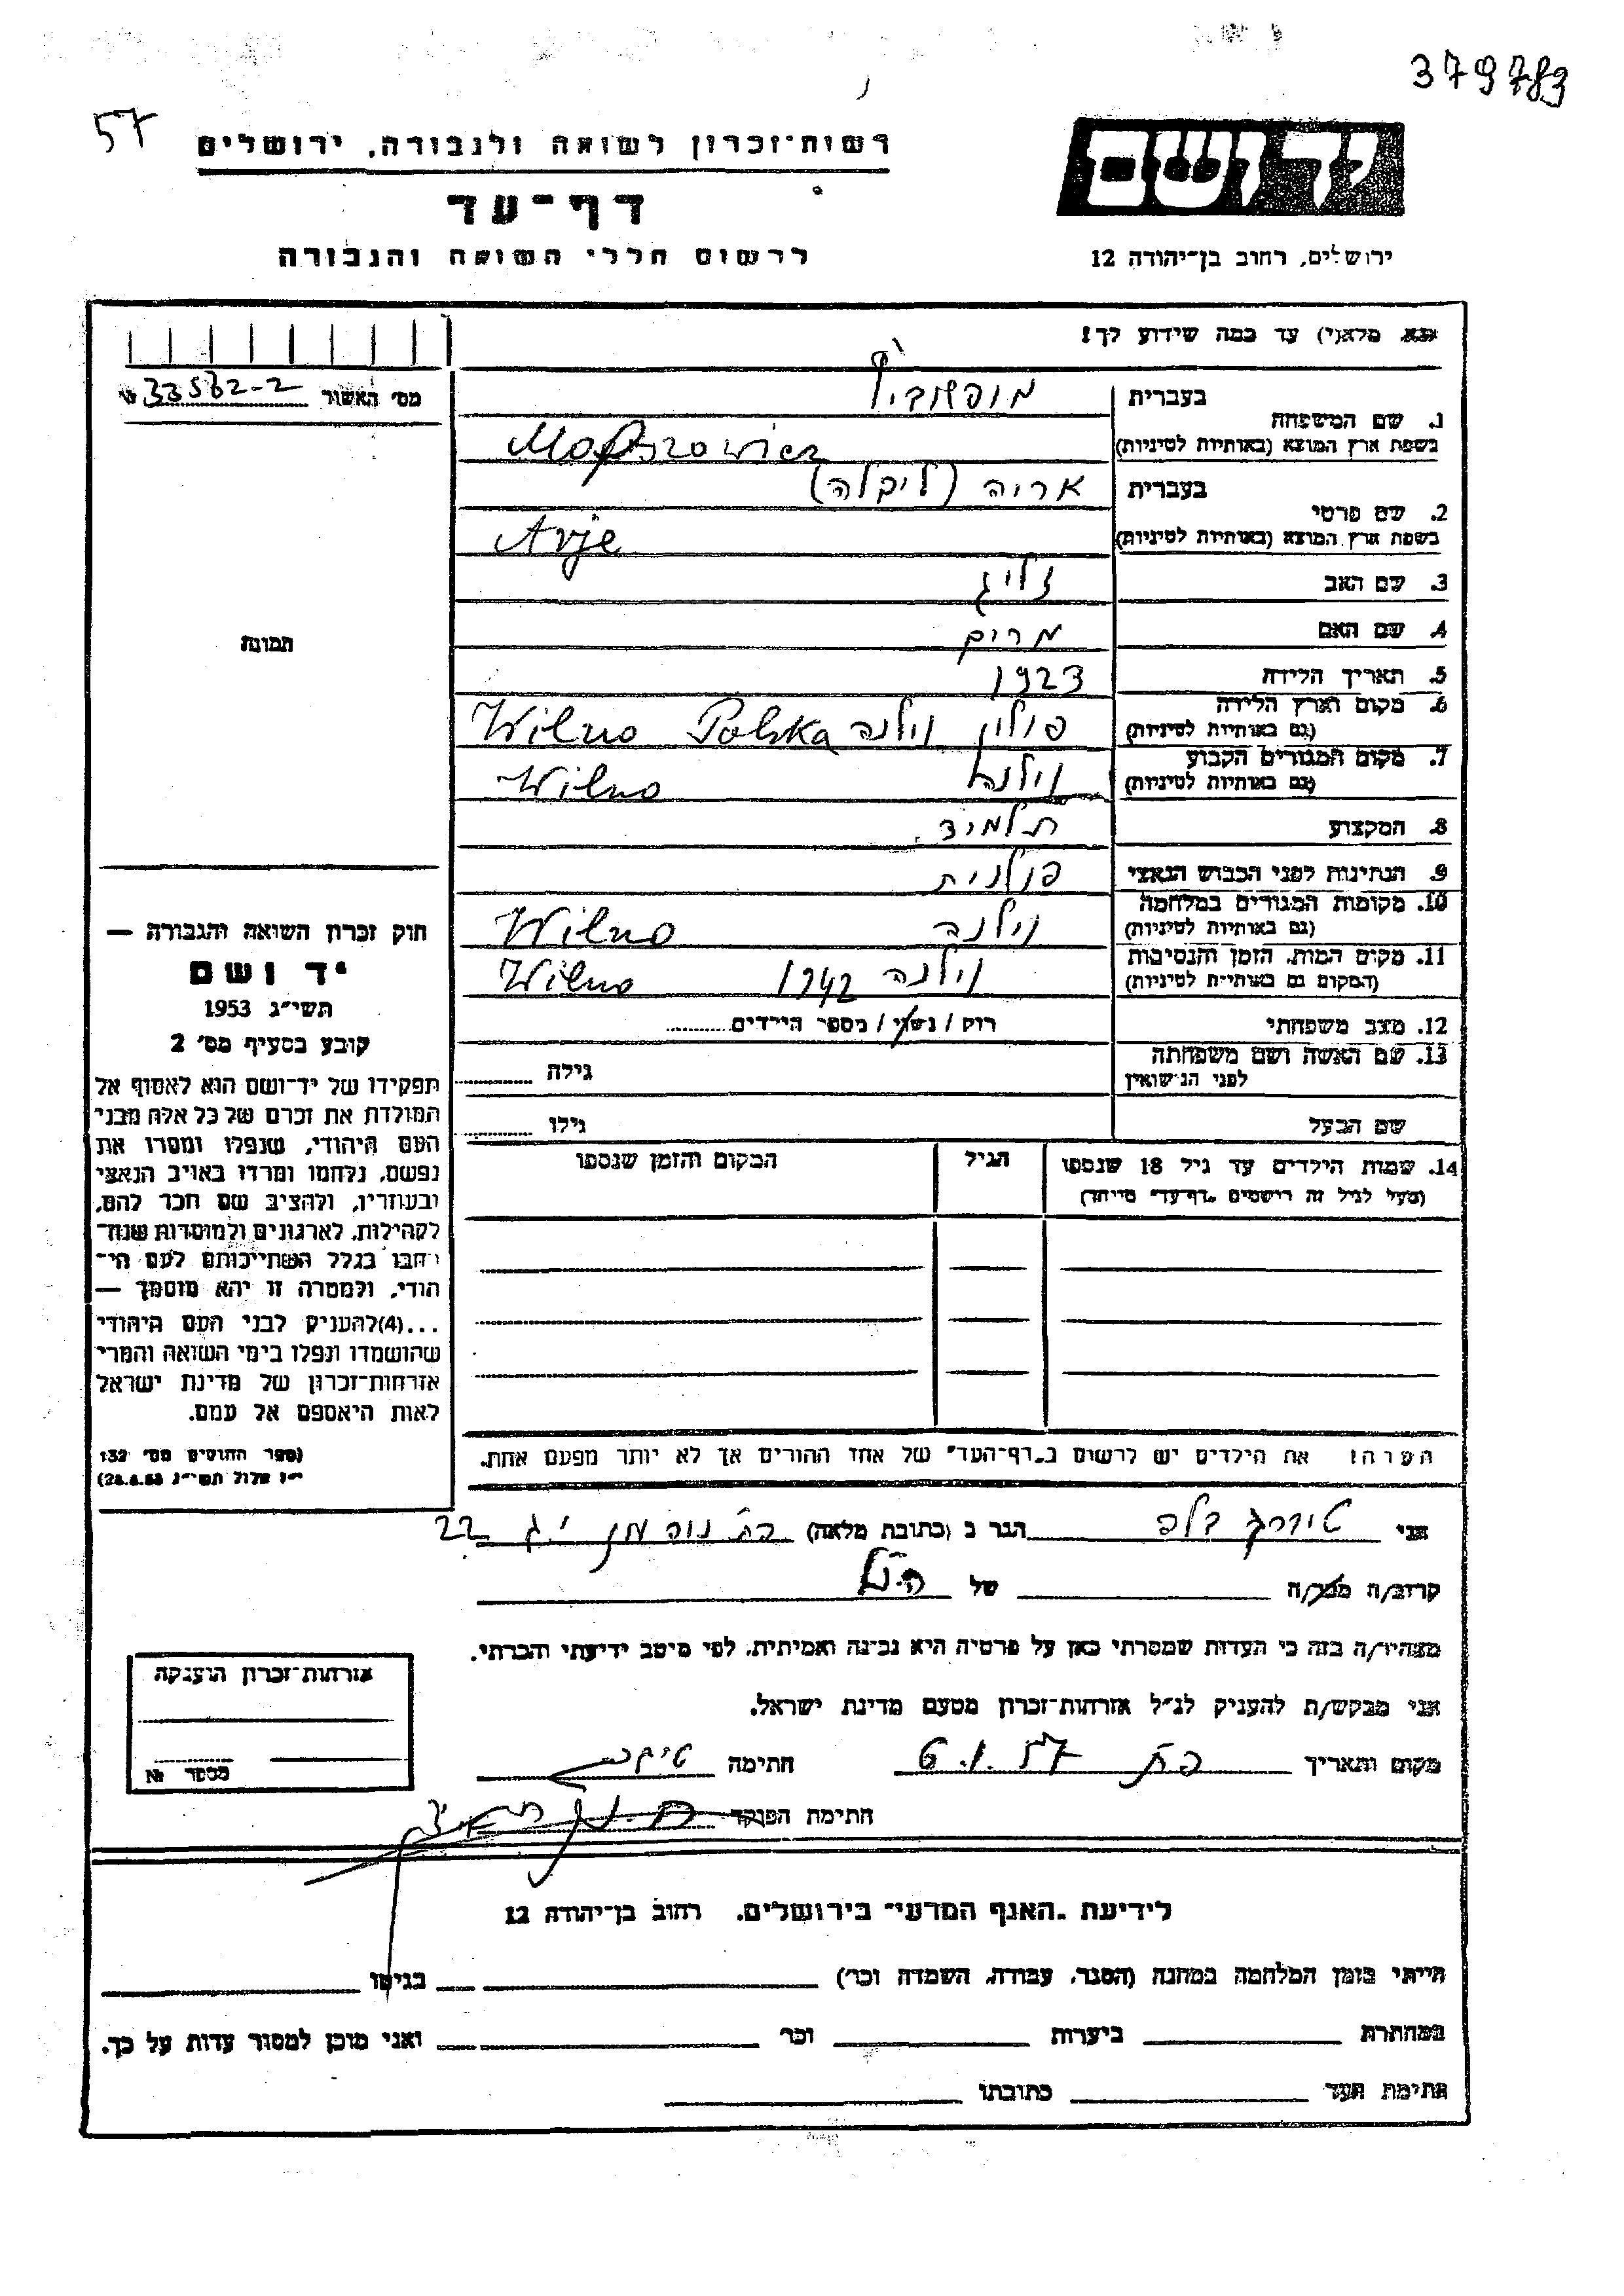 379783
57
רשות־זכרון לשואה ולגבורה, ירושלים
יד ושם
דף־עד
לרשום חללי השואה והגבורה
ירושלים, רחוב בן־יהודה 12
נא מלא(י) עד כמה שידוע לך!
מס׳ האשור 33532-2
1. שם המשפחה
בעברית
בשפת ארץ המוצא (באותיות לטיניות)
2. שם פרטי
בעברית אריה (ליבלה)
בשפת ארץ המוצא (באותיות לטיניות) Arje
3. שם האב זליג
4. שם האם מרים
5. תאריך הלידה 1923
6. מקום וארץ הלידה
(גם באותיות לטיניות) פולין וילנה Wilno Polska
7. מקום המגורים הקבוע
(גם באותיות לטיניות) וילנה Wilno
8. המקצוע תלמיד
9. הנתינות לפני הכבוש הנאצי פולנית
10. מקומות המגורים במלחמה
(גם באותיות לטיניות) וילנה Wilno
11. מקום המות, הזמן והנסיבות
(המקום גם באותיות לטיניות) וילנה 1942 Wilno
12. מצב משפחתי רוק / נשוי / מספר הילדים
13. שם האשה ושם משפחתה
לפני הנישואין גילה
שם הבעל גילו
14. שמות הילדים עד גיל 18 שנספו
(מעל לגיל זה רושמים „דף־עד״ מיוחד)
הגיל
המקום והזמן שנספו
הערה: את הילדים יש לרשום ב„דף־העד״ של אחד ההורים אך לא יותר מפעם אחת.
תמונה
חוק זכרון השואה והגבורה —
יד ושם
תשי״ג 1953
קובע בסעיף מס׳ 2
תפקידו של יד־ושם הוא לאסוף אל
המולדת את זכרם של כל אלה מבני
העם היהודי, שנפלו ומסרו את
נפשם, נלחמו ומרדו באויב הנאצי
ובעוזריו, ולהציב שם וזכר להם,
לקהילות, לארגונים ולמוסדות שנח־
רבו בגלל השתייכותם לעם הי־
הודי, ולמטרה זו יהא מוסמך —
...(4) להעניק לבני העם היהודי
שהושמדו ונפלו בימי השואה והמרי
אזרחות־זכרון של מדינת ישראל
לאות היאספם אל עמם.
(ספר החוקים מס׳ 132
י״ז אלול תשי״ג 28.8.53)
אני הגר ב (כתובת מלאה) 22
קרוב/ה מכר/ה של הנ״ל
מצהיר/ה בזה כי העדות שמסרתי כאן על פרטיה היא נכונה ואמיתית, לפי מיטב ידיעתי והכרתי.
אני מבקש/ת להעניק לנ״ל אזרחות־זכרון מטעם מדינת ישראל.
מקום ותאריך 6.1.57 חתימה
חתימת הפוקד
אזרחות־זכרון הוענקה
מספר №
לידיעת „האגף המדעי״ בירושלים, רחוב בן־יהודה 12
הייתי בזמן המלחמה במחנה (הסגר, עבודה, השמדה וכו׳) בגיטו
במחתרת ביערות וכו׳ ואני מוכן למסור עדות על כך.
חתימת העד כתובתו